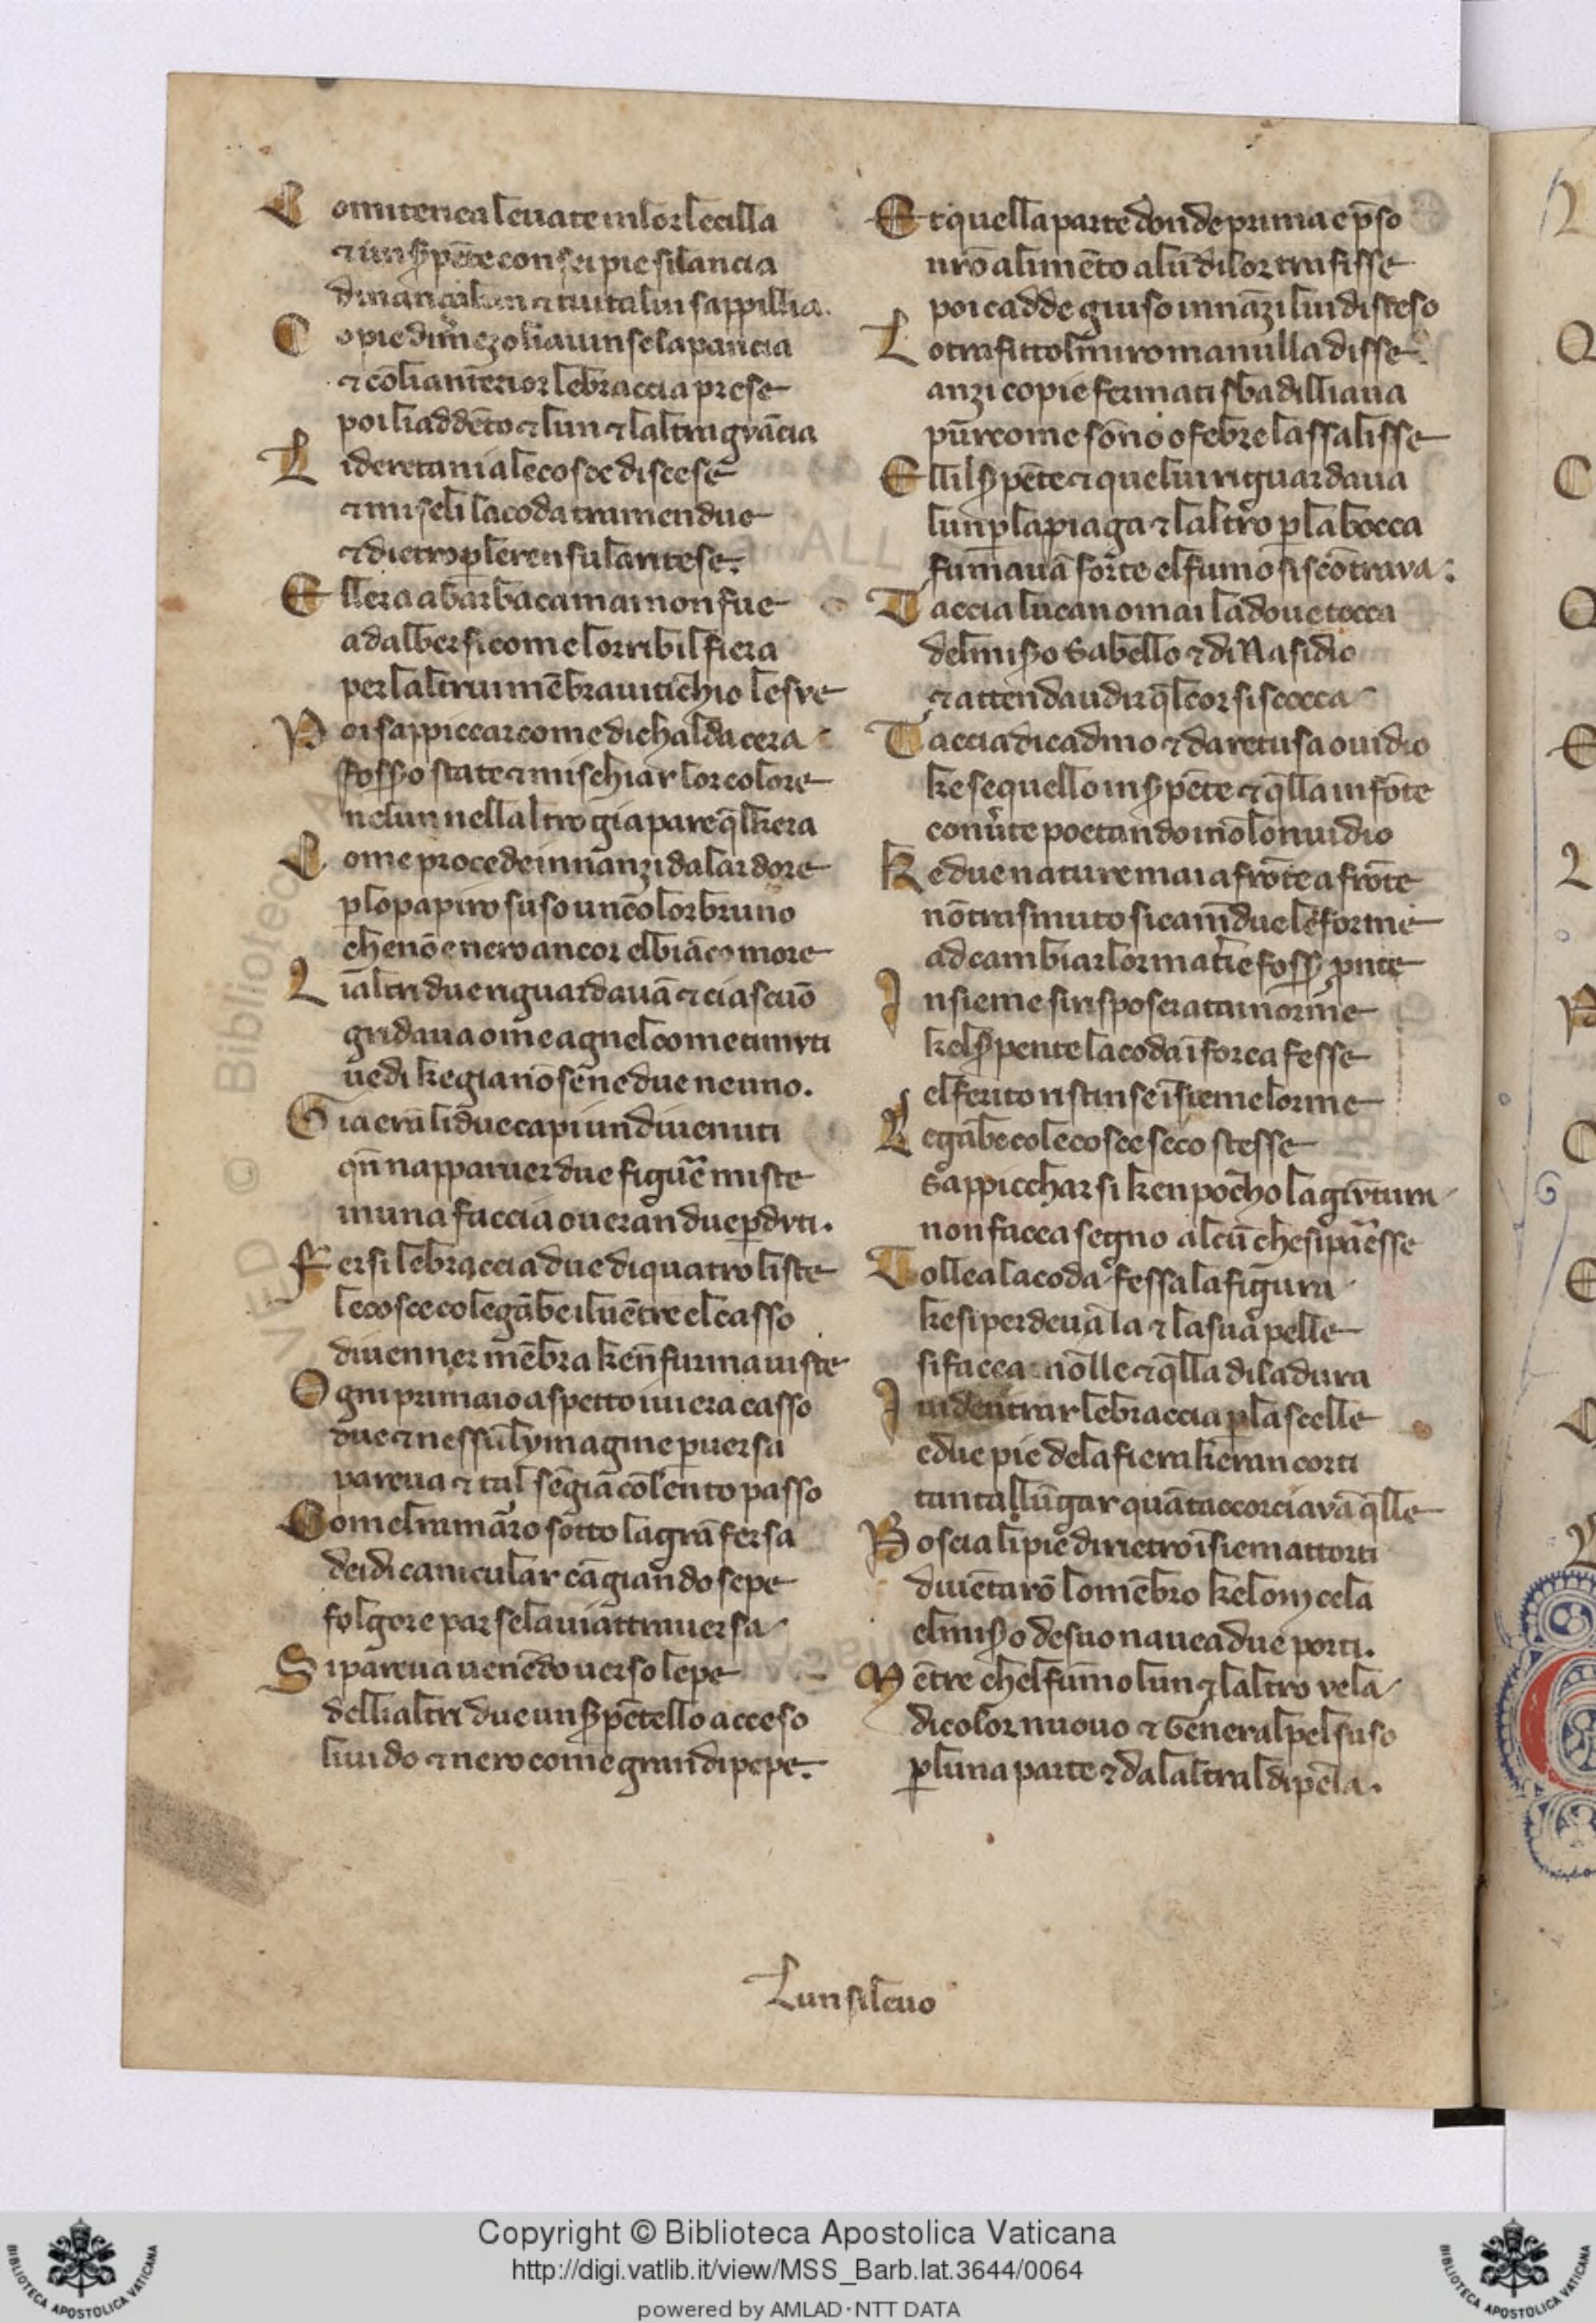 Comitenea leuate inlor lecillia
⁊ un s̄pēte con sei pie silancia
dinançi alun ⁊ tuttalui sappillia.
Co pie dim̄ezo liauinse lapancia
⁊ cō lianterior lebraccia prese
poi li addēto ⁊ lun ⁊ laltra guācia
Lideretani ale cosce discese
⁊ miseli lacoda tramendue
⁊ dietro p leren su la ritese.
Ellera abarbacamamonfue
ad alber si come lorribil fiera
per laltrui mēbra uitichio le sve
Poi sappiccar come di chalda cera
fosso state ⁊ mischiar lor colore
ne lun nellaltro gia pare q̄l kera
Come procede innanzi da lardore
p lo papiro suso un color bruno
che nō e nero ancor el biāco more
Li altri due riguardauā ⁊ ciascuō
gridaua ome agnel come ti mvti
uedi ke gia nō se ne due ne uno.
Gia eran li due capi un diuenuti
qn̄ napparuer due figure miste
in una faccia oueran due p̄dvti.
Fersi le braccia due di quatro liste
le cosce co le gābe il uētre el casso
diuenner mēbra ken̄ fur ma uiste
Ogni primaio aspetto iui era casso
due ⁊ nessū lymagine p̄uersa
pareua ⁊ tal sē gia cō lento passo
Come lramarro sotto la grā fersa
dei di canicular cāgiando sepe
folgore par se la uia attrauersa
Si pareua uenēdo uerso lepe
delli altri due un s̄pētello acceso
liuido ⁊ nero come gran di pepe.
Et quella parte donde prima e p̄so
nr̄o alimēto alū di lor trafisse
poi cadde giuso innāzi lui disteso
Lo trafitto l miro ma nulla disse
anzi co pie fermati sbadilliaua
pur come sōno o febre lassalisse
Elli l s̄pēte ⁊ quel lui riguardaua
lun p la piaga ⁊ laltro p la bocca
fumauā forte el fumo si scōtrava:
Taccia lucano mai la doue tocca
del miso Sabello ⁊ di Nasidio
⁊ attenda udir q̄l cor si scocca
Taccia di cadmo ⁊ daretusa ouidio
ke se quello in s̄pēte ⁊ q̄lla in fōte
conūte poetando i nō lo nuidio
Ke due nature mai a frōte a frōte
nō trasmuto si camdue le forme
ad cambiar lor materie foss p̄nte
Insieme si risposera ta i norme
kel s̄pente la coda ī forca fesse
el ferito ristinse īsieme lorme
Le gābe co le cosce seco stesse
Sappicchar si ken pocho la givtura
non facea segno alcū che si paresse
Tollea la coda fessa la figura
ke si perdeua la ⁊ la sua pelle
si facea nolle ⁊ q̄lla di la dura
I uidentrar le braccia p la scelle
e due pie dela fiera keran corti
tanto allūgar quāto accorciavā q̄lle
Poscia li pie dirietro īsiem attorti
diuētarō lo mēbro kelom cela
el miso del suo nauea due porti.
Mētre chel fumo lun ⁊ laltro vela
di color nuouo ⁊ General pel suso
p luna parte ⁊ da laltra l dipela.
Lun si leuo
VED © Biblioteca A
Copyright © Biblioteca Apostolica Vaticana
http://digi.vatlib.it/view/MSS_Barb.lat.3644/0064
powered by AMLAD·NTT DATA
BIBLIOTECA APOSTOLICA VATICANA
BIBLIOTECA APOSTOLICA VATICANA